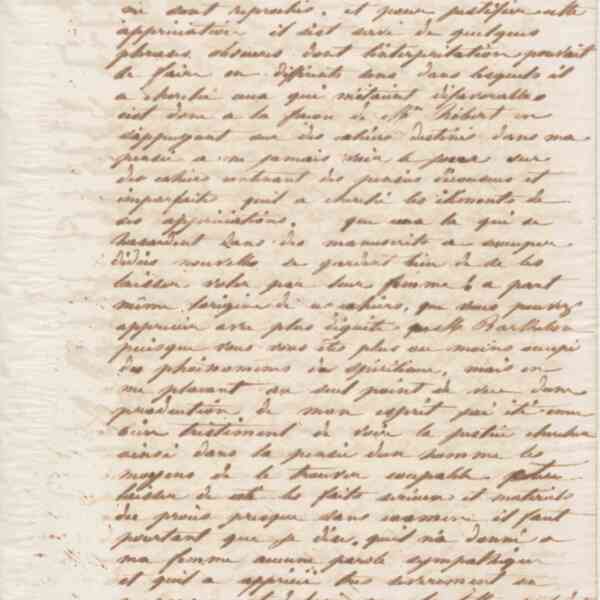 me sont reprochés, et pour justifier cette
appréciation il s'est servi de quelques
phrases obscures dont l'interprétation pouvait
se faire en différents sens dans lesquels il
a cherché ceux qui m'étaient défavorables
c'est donc à la façon de Mr Hébert en
s'appuyant sur des cahiers destinés dans ma
pensée à ne jamais voir le jour sur
des cahiers contenant des pensées décousues et
imparfaites qu'il a cherché les éléments de
ses appréciations. que ceux là qui se
hasardent dans des manuscrits a
d'idées nouvelles se gardent bien de se les
laisser voler par leur femme & a part
même l'origine de ces cahiers, que vous pouvez
apprécier avec plus d'équité que Mr Barthelon
puisque vous vous êtes plus ou moins occupé
des phénomènes du spiritisme, mais en
me plaçant au seul point de vue d'une
production de mon esprit j'ai été ému
bien tristement de voir la justice chercher
ainsi dans la pensée d'un homme les
moyens de le trouver coupable
laisser de côté les faits sérieux et matériels
du procès presque sans examen il faut
pourtant que je dise, qu'il n'a donné a
ma femme aucune parole sympathique
et qu'il a apprécié très sévèrement sa